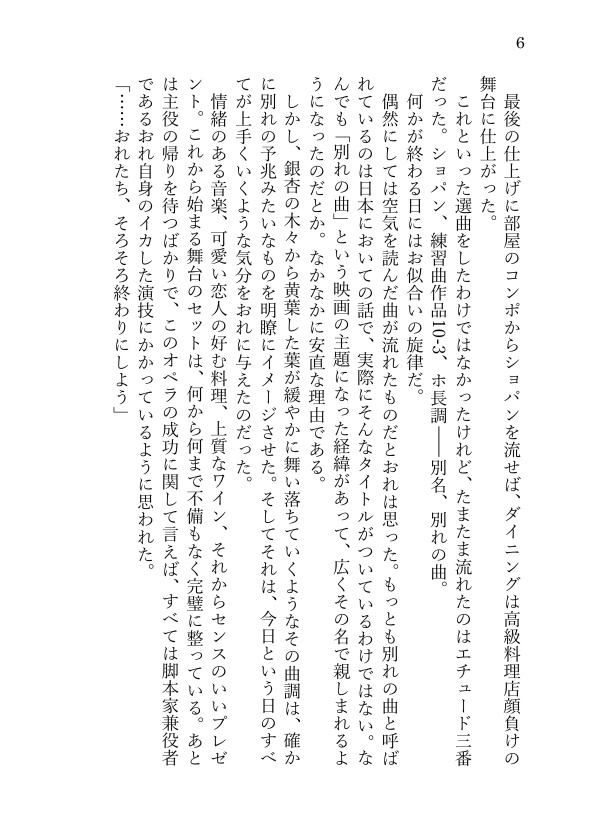 6
最後の仕上げに部屋のコンポからショパンを流せば、ダイニングは高級料理店顔負けの
舞台に仕上がった。
これといった選曲をしたわけではなかったけれど、たまたま流れたのはエチュード三番
だった。ショパン、練習曲作品10-3、ホ長調――別名、別れの曲。
何かが終わる日にはお似合いの旋律だ。
偶然にしては空気を読んだ曲が流れたものだとおれは思った。もっとも別れの曲と呼ば
れているのは日本においての話で、実際にそんなタイトルがついているわけではない。な
んでも「別れの曲」という映画の主題になった経緯があって、広くその名で親しまれるよ
うになったのだとか。なかなかに安直な理由である。
しかし、銀杏の木々から黄葉した葉が緩やかに舞い落ちていくようなその曲調は、確か
に別れの予兆みたいなものを明瞭にイメージさせた。そしてそれは、今日という日のすべ
てが上手くいくような気分をおれに与えたのだった。
情緒のある音楽、可愛い恋人の好む料理、上質なワイン、それからセンスのいいプレゼ
ント。これから始まる舞台のセットは、何から何まで不備もなく完璧に整っている。あと
は主役の帰りを待つばかりで、このオペラの成功に関して言えば、すべては脚本家兼役者
であるおれ自身のイカした演技にかかっているように思われた。
「……おれたち、そろそろ終わりにしよう」